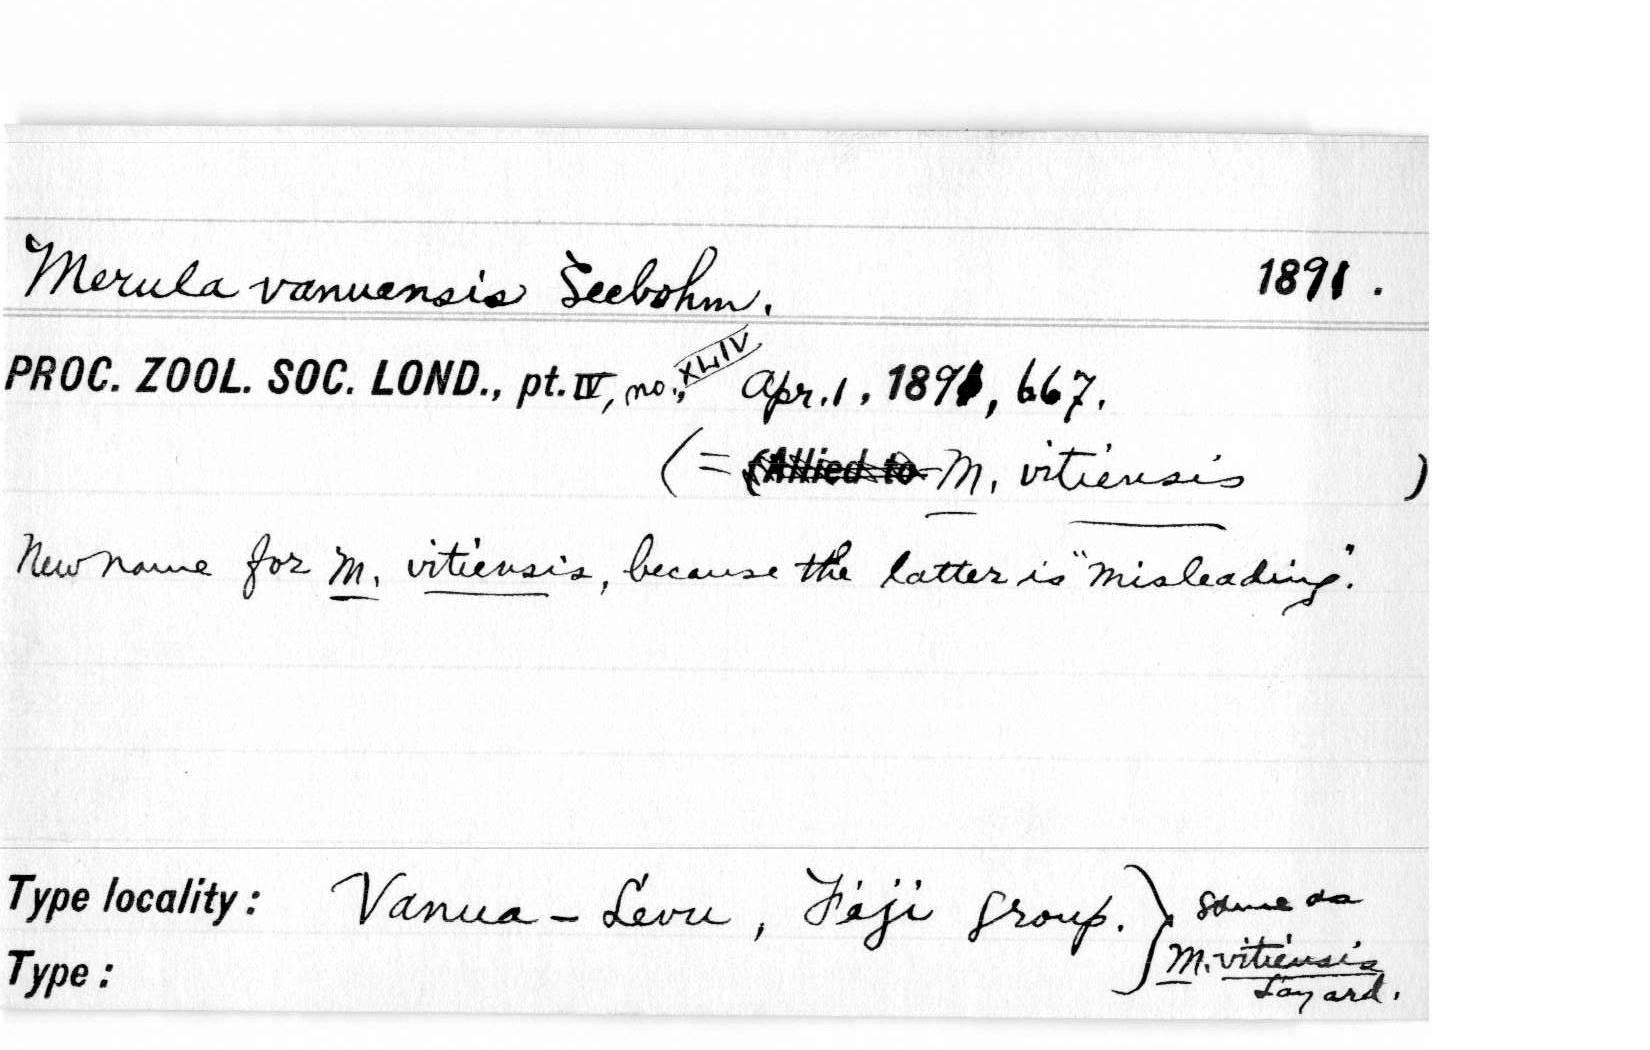 Merula vanuensis Seebohm. 1891.
PROC. ZOOL. SOC. LOND., pt. IV, no., XLIV Apr. 1, 1891, 667.
(= (Allied to M. vitiensis )
New name for M. vitiensis, because the latter is "misleading".
Type locality: Vanua-Levu, Fiji group. } same as
Type: M. vitiensis
Layard.